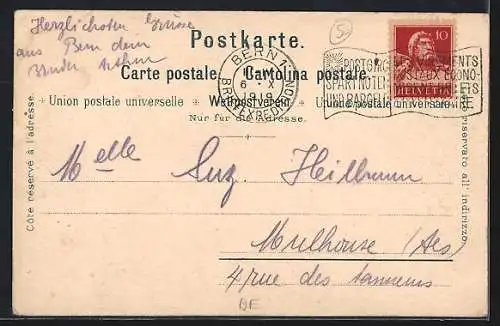 Herzlichsten Grüsse
aus Bern dein
Bruder Arthur
5
Postkarte.
Carte postale. Cartolina postale.
Union postale universelle Weltpostverein. Unione postale universale
Nur für die Adresse.
Côte réservé à l'adresse.
riservato all' indirizzo.
BERN 1
6·X
1919
BRIEFEXPEDITION
POSTCHECK
SPART NOTEN
UND BARGELD
10
HELVETIA
Melle Suz. Heilbrunn
Mulhouse (Als)
4 rue des tanneurs
BE